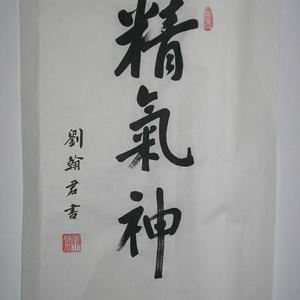 精氣神
劉翰君書